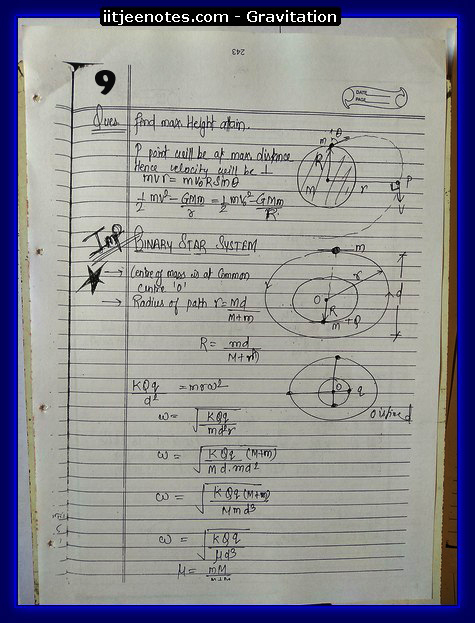 iitjeenotes.com - Gravitation
243
9
DATE
PAGE
Ques find max Height attain.
P point will be at max distance
Hence velocity will be ⊥
mvr = mv₀R Sinθ
½ mv² - GMm/r = ½ mv₀² - GMm/R
m θ
R
M r
P
IMP BINARY STAR SYSTEM
→ Centre of mass is at Common
centre 'O'
→ Radius of path r = Md/(M+m)
R = md/(M+m)
m
r
O
R
d
KQq/d² = mrω²
ω = √(KQq/(md²r))
ω = √(KQq (M+m)/(Md.md²))
ω = √(KQq (M+m)/(Mmd³))
ω = √(KQq/(μd³))
μ = mM/(m+M)
O
q
O is fixed